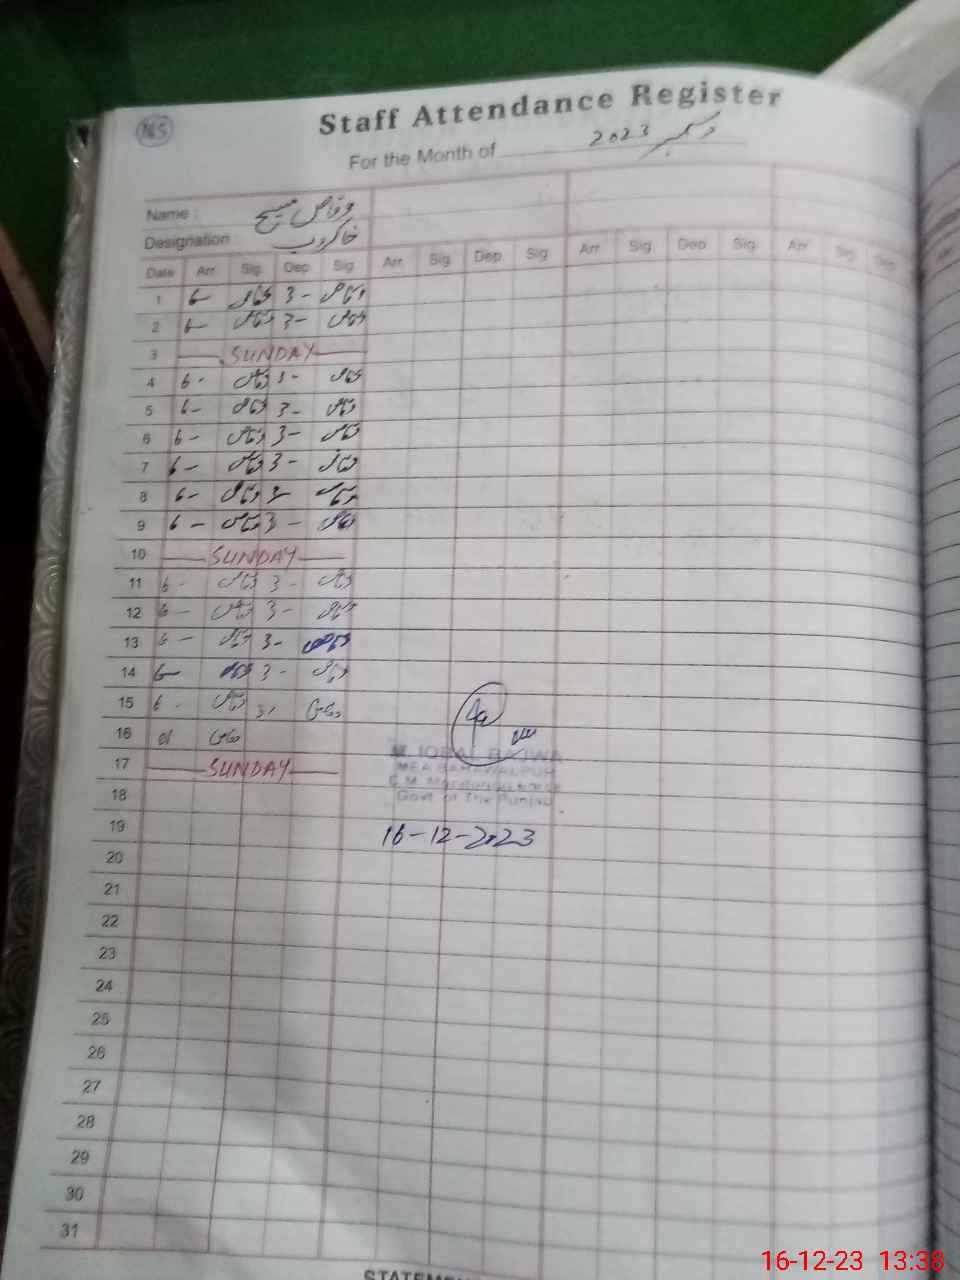 165
Staff Attendance Register
For the Month of دسمبر 2023
Name : وقاص مسیح
Designation : خاکروب
Date Arr. Sig. Dep. Sig. Arr. Sig. Dep. Sig. Arr. Sig. Dep. Sig. Arr. Sig. Dep.
1 6- وقاص 3- وقاص
2 6- وقاص 3- وقاص
3 SUNDAY
4 6- وقاص 3- وقاص
5 6- وقاص 3- وقاص
6 6- وقاص 3- وقاص
7 6- وقاص 3- وقاص
8 6- وقاص 3- وقاص
9 6- وقاص 3- وقاص
10 SUNDAY
11 6- وقاص 3- وقاص
12 6- وقاص 3- وقاص
13 6- وقاص 3- وقاص
14 6- وقاص 3- وقاص
15 6- وقاص 3- وقاص
16 وقاص
17 SUNDAY
M. IQBAL BAJWA
MEA BAHAWALPUR
C.M. Monitoring Force
Govt. of The Punjab
18
19
16-12-2023
20
21
22
23
24
25
26
27
28
29
30
31
16-12-23 13:38